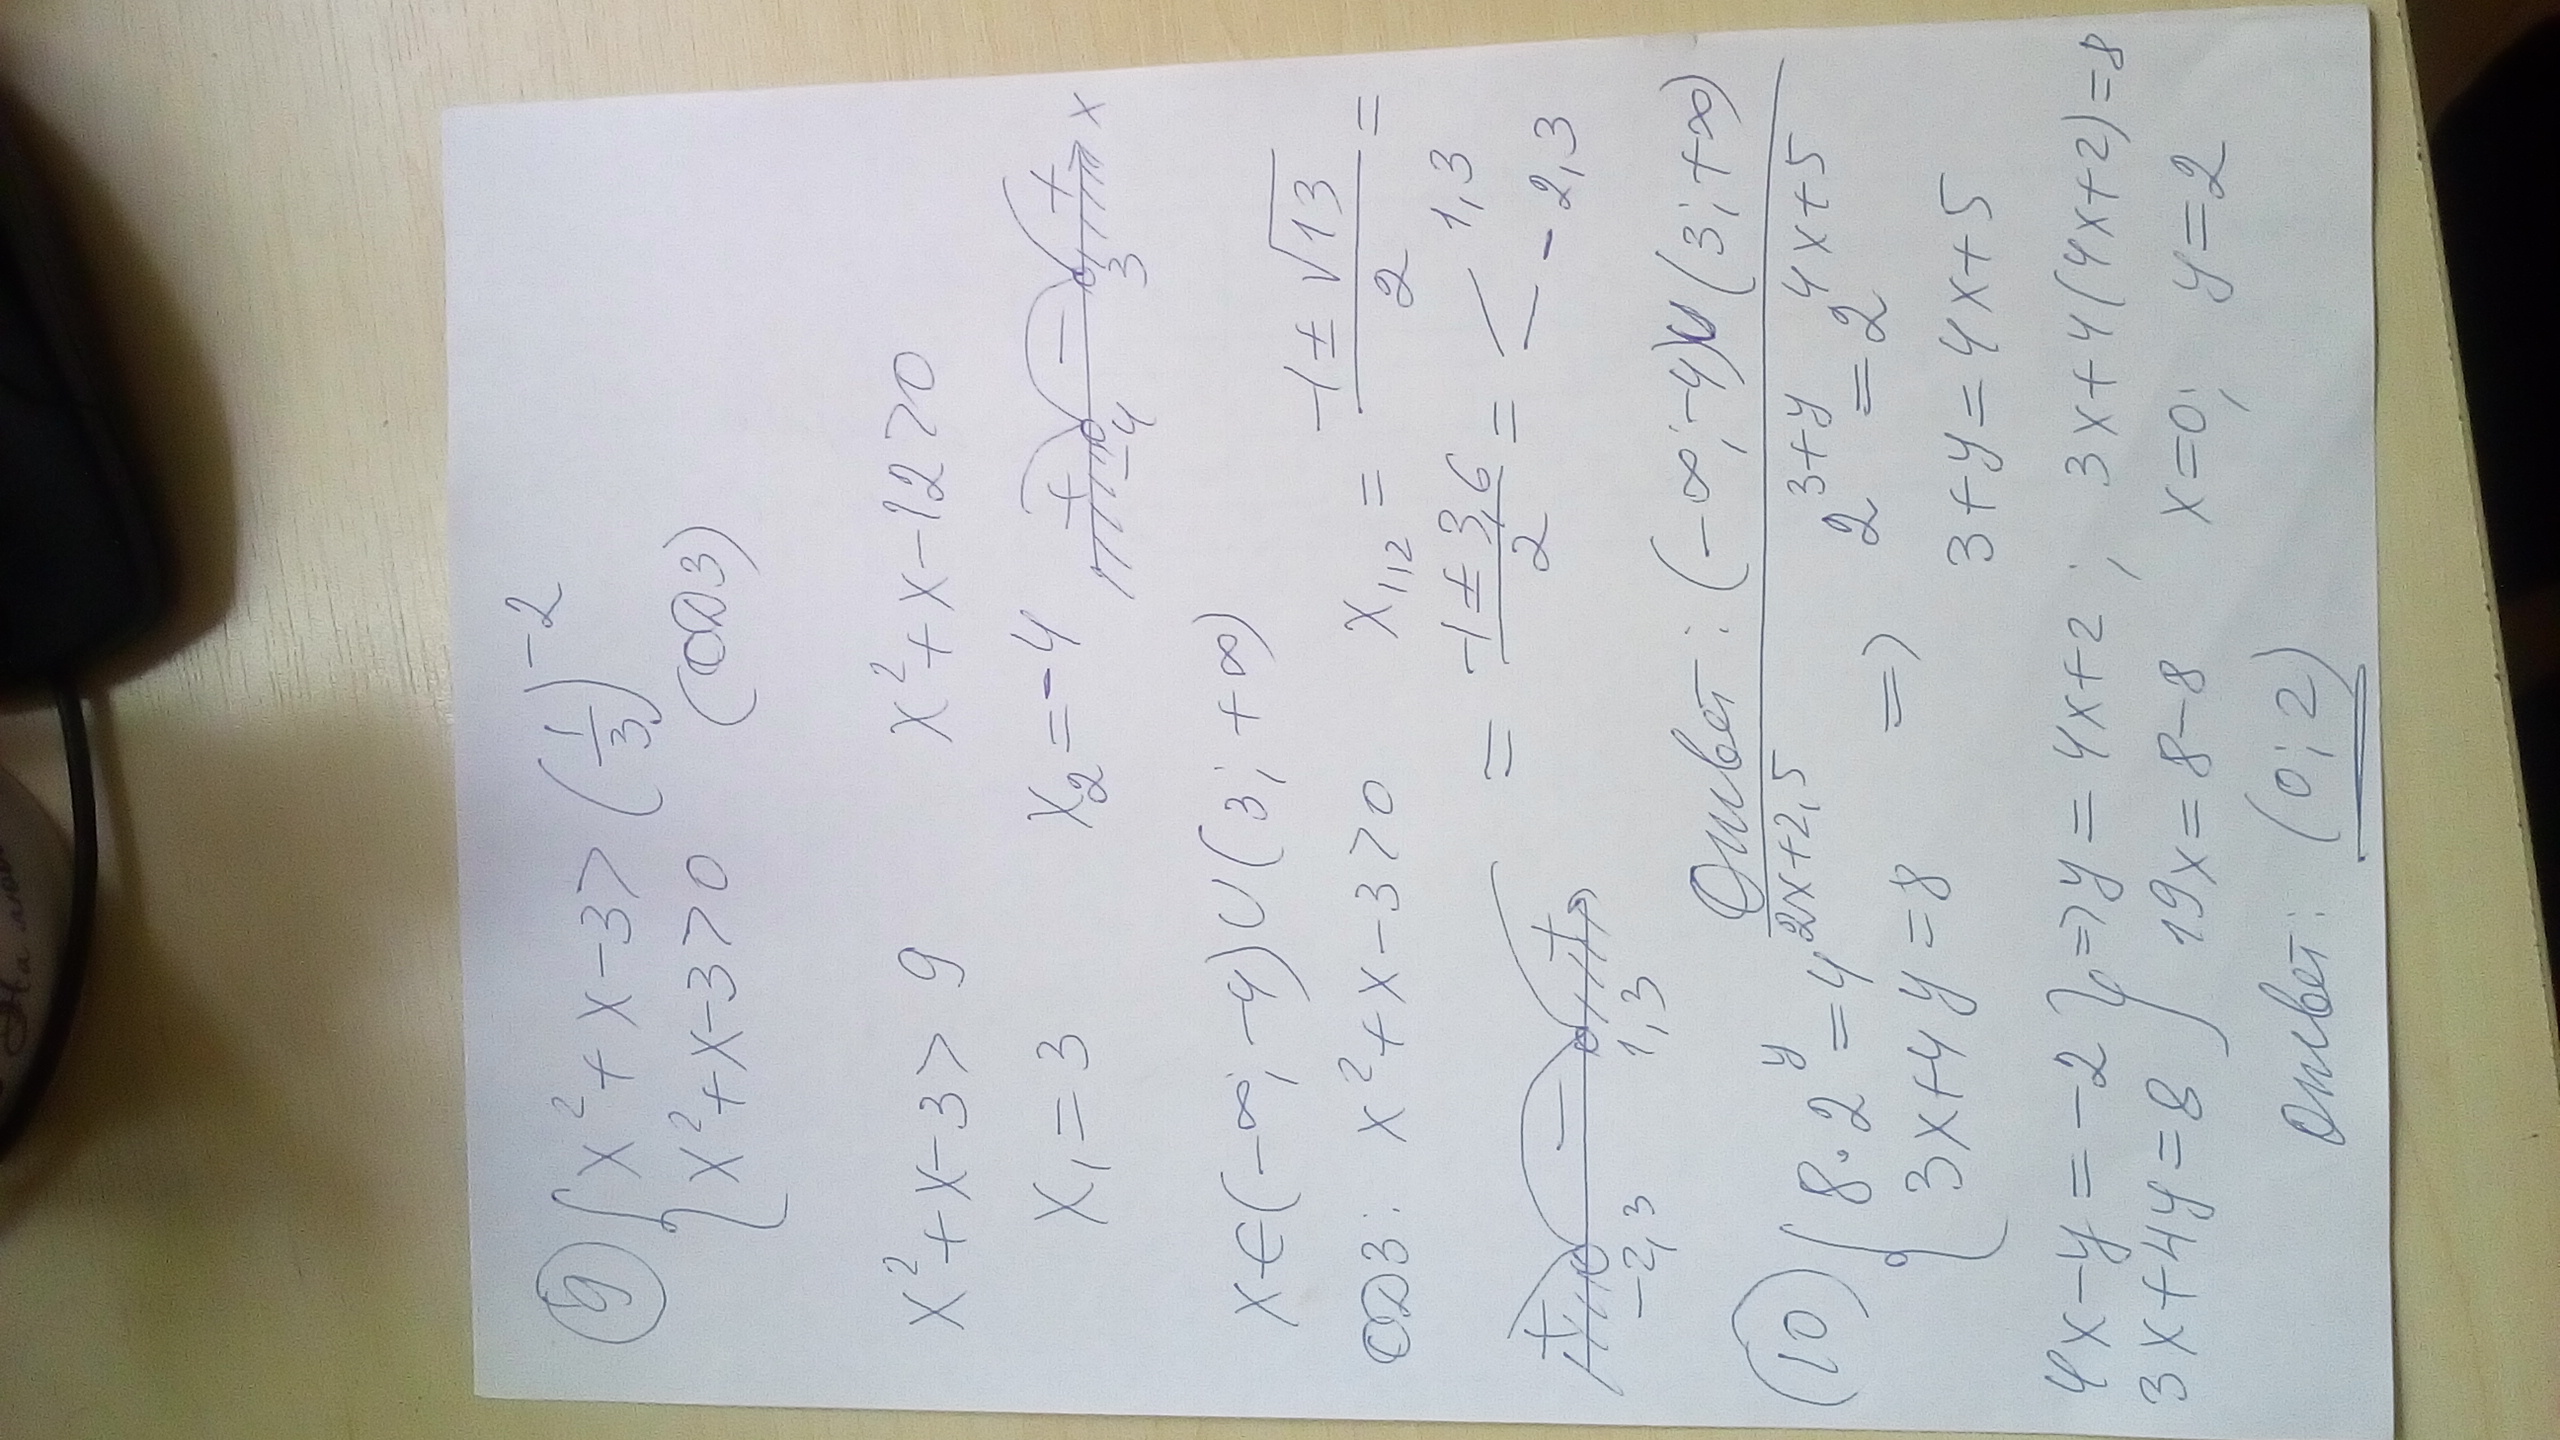 9) { x² + x - 3 > (1/3)⁻²
x² + x - 3 > 0 (ОДЗ)
x² + x - 3 > 9 x² + x - 12 > 0
x₁ = 3 x₂ = -4 + -4 - 3 + x
x ∈ (-∞; -4) ∪ (3; +∞)
ОДЗ: x² + x - 3 > 0 x₁,₂ = (-1 ± √13)/2 =
= (-1 ± 3,6)/2 = < 1,3
- 2,3
+ -2,3 - 1,3 +
Ответ: (-∞; -4) ∪ (3; +∞)
10) { 8 · 2^y = 4^(2x+2,5) 2^(3+y) = 2^(4x+5)
3x + 4y = 8 => 3 + y = 4x + 5
4x - y = -2 } => y = 4x + 2; 3x + 4(4x + 2) = 8
3x + 4y = 8 } 19x = 8 - 8 x = 0; y = 2
Ответ: (0; 2)
На